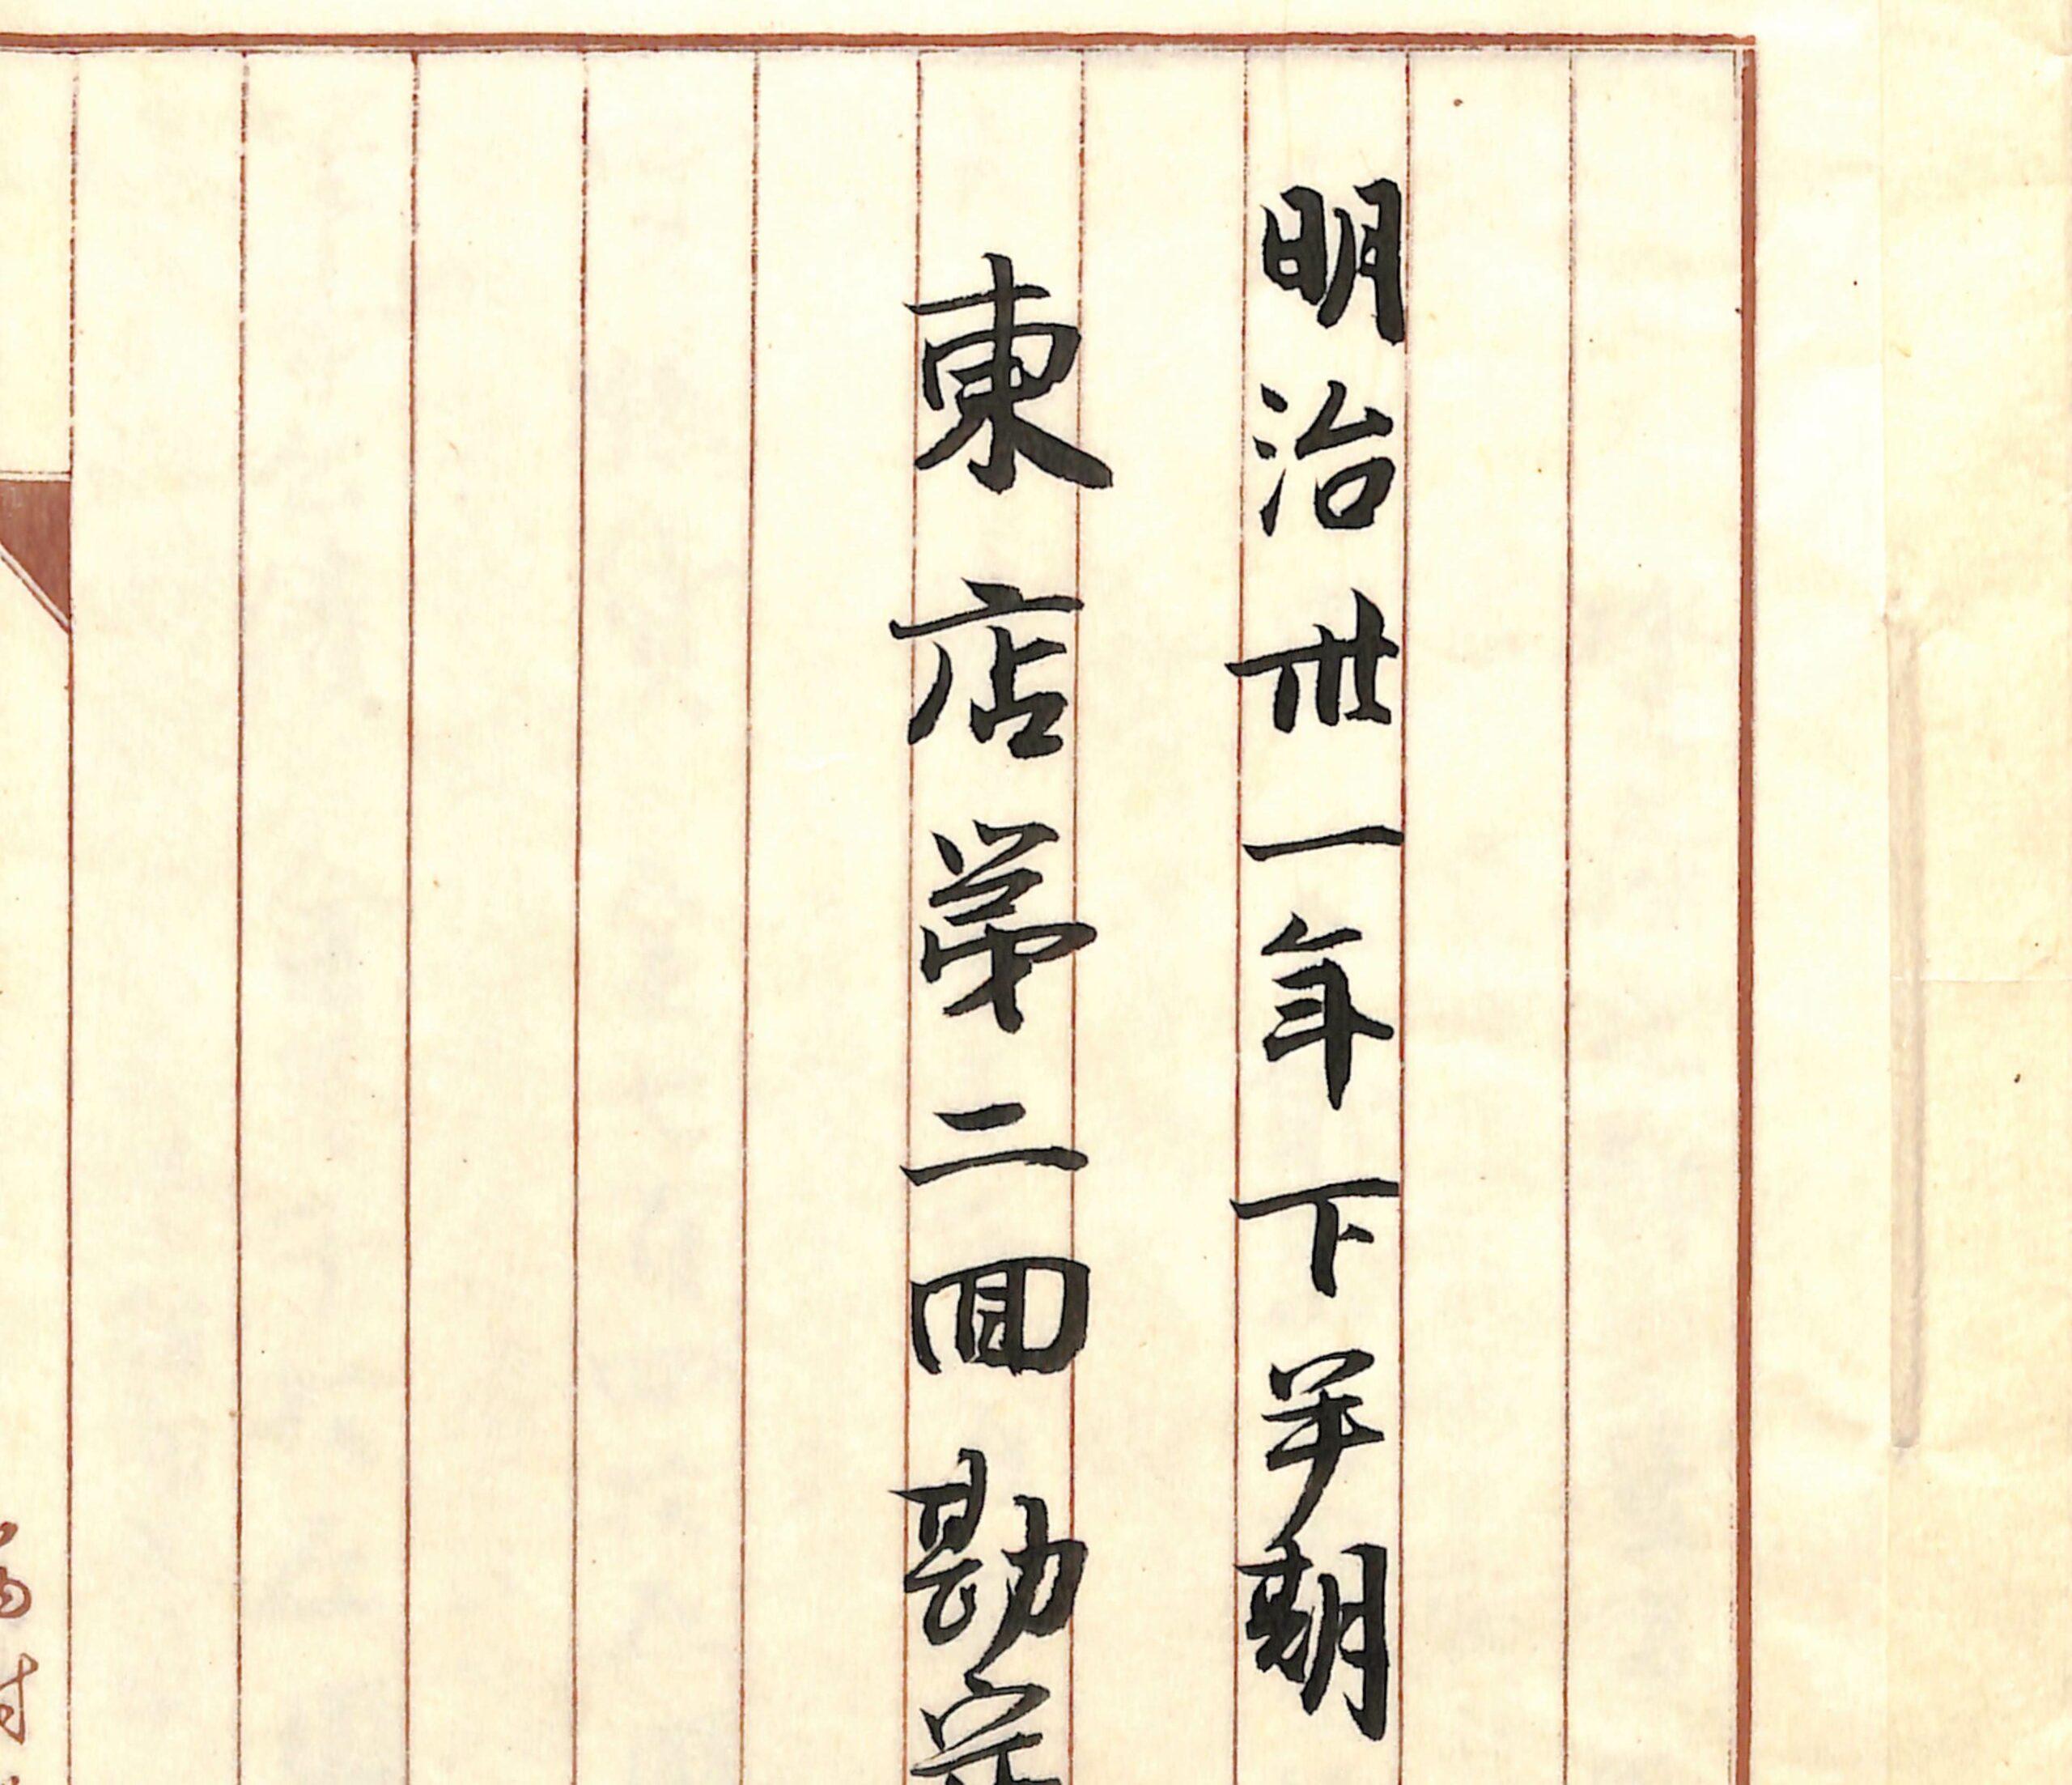 明治丗一年下半期
東店第二回勘定